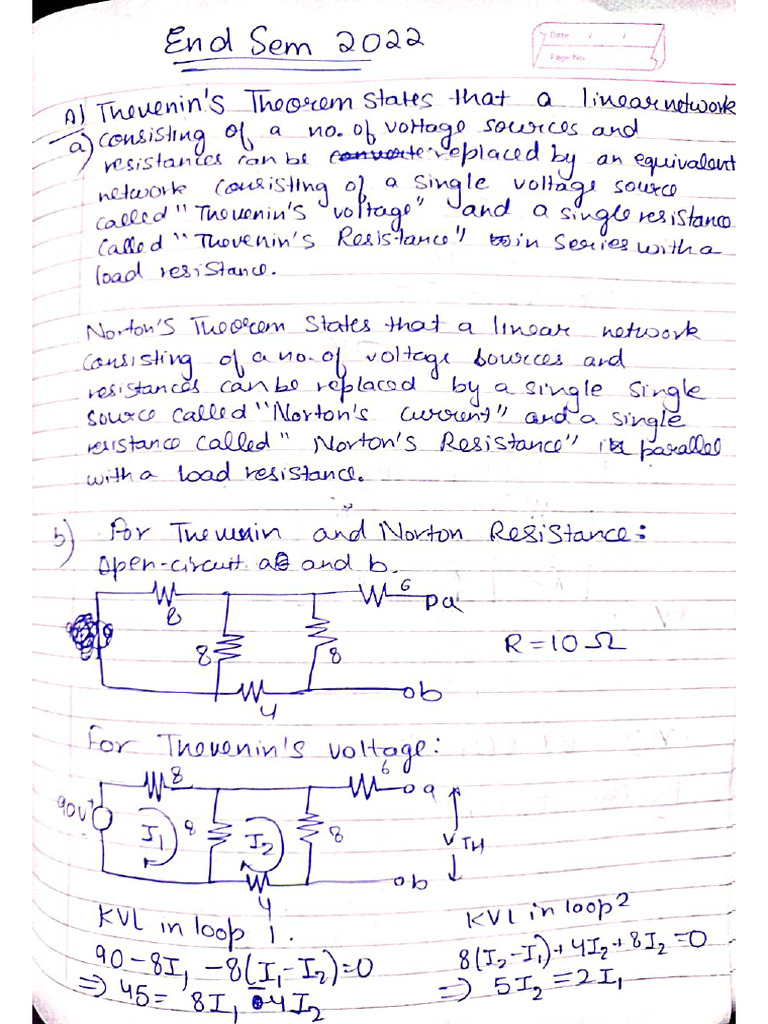 End Sem 2022
Date / /
Page No.
A) Thevenin's Theorem states that a linear network
a) consisting of a no. of voltage sources and
resistances can be replaced by an equivalent
network consisting of a single voltage source
called "Thevenin's voltage" and a single resistance
called "Thevenin's Resistance" in series with a
load resistance.
Norton's Theorem states that a linear network
consisting of a no. of voltage sources and
resistances can be replaced by a single single
source called "Norton's current" and a single
resistance called "Norton's Resistance" in parallel
with a load resistance.
b) For Thevenin and Norton Resistance:
open-circuit a and b.
8
6
a
8
8
R = 10 Ω
4
b
For Thevenin's voltage:
8
6
a
90V
+
I₁
8
I₂
8
V TH
4
b
KVL in loop 1.
90 - 8I₁ - 8(I₁ - I₂) = 0
⇒ 45 = 8I₁ - 4I₂
KVL in loop 2
8(I₂ - I₁) + 4I₂ + 8I₂ = 0
⇒ 5I₂ = 2I₁